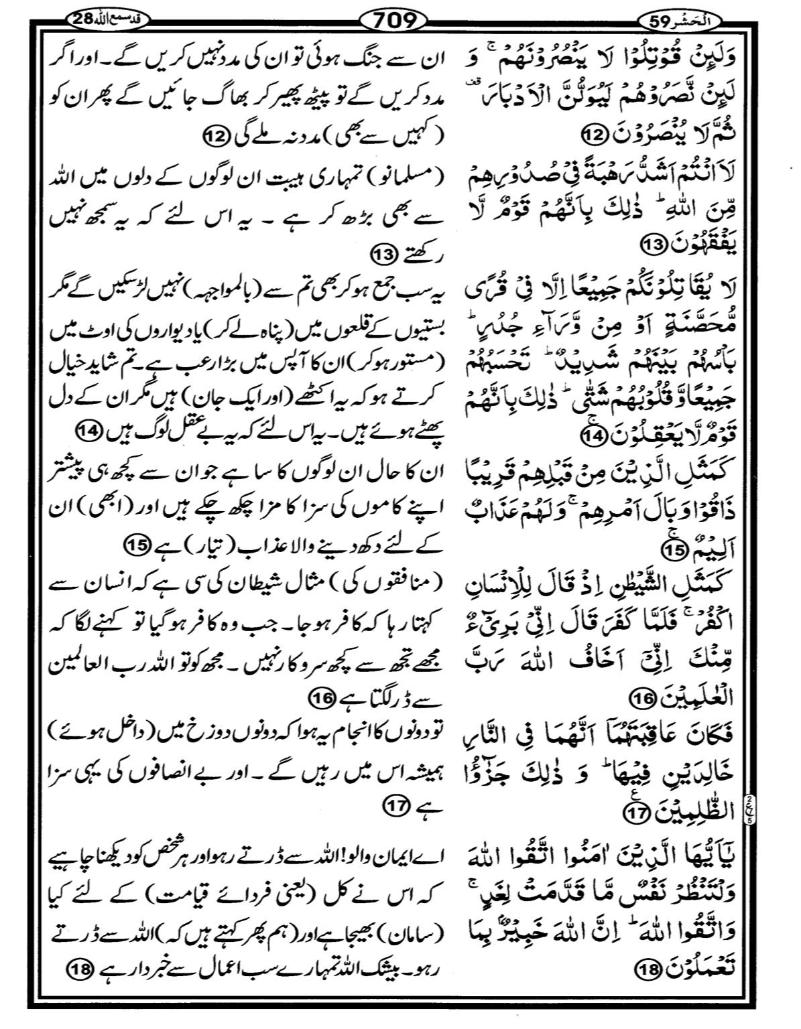 الْحَشْر 59
709
قد سمع اللہ 28
وَلَئِنْ قُوْتِلُوْا لَا يَنْصُرُوْنَهُمْ ۚ وَ
لَئِنْ نَّصَرُوْهُمْ لَيُوَلُّنَّ الْاَدْبَارَ ۟
ثُمَّ لَا يُنْصَرُوْنَ 12
لَاَانْتُمْ اَشَدُّ رَهْبَةً فِيْ صُدُوْرِهِمْ
مِّنَ اللّٰهِ ؕ ذٰلِكَ بِاَنَّهُمْ قَوْمٌ لَّا
يَفْقَهُوْنَ 13
لَا يُقَاتِلُوْنَكُمْ جَمِيْعًا اِلَّا فِيْ قُرًى
مُّحَصَّنَةٍ اَوْ مِنْ وَّرَآءِ جُدُرٍ ؕ
بَاْسُهُمْ بَيْنَهُمْ شَدِيْدٌ ؕ تَحْسَبُهُمْ
جَمِيْعًا وَّقُلُوْبُهُمْ شَتّٰى ؕ ذٰلِكَ بِاَنَّهُمْ
قَوْمٌ لَّا يَعْقِلُوْنَ ۚ 14
كَمَثَلِ الَّذِيْنَ مِنْ قَبْلِهِمْ قَرِيْبًا
ذَاقُوْا وَبَالَ اَمْرِهِمْ ۚ وَلَهُمْ عَذَابٌ
اَلِيْمٌ ۚ 15
كَمَثَلِ الشَّيْطٰنِ اِذْ قَالَ لِلْاِنْسَانِ
اكْفُرْ ۚ فَلَمَّا كَفَرَ قَالَ اِنِّيْ بَرِيْٓءٌ
مِّنْكَ اِنِّيْٓ اَخَافُ اللّٰهَ رَبَّ
الْعٰلَمِيْنَ 16
فَكَانَ عَاقِبَتَهُمَآ اَنَّهُمَا فِي النَّارِ
خَالِدَيْنِ فِيْهَا ؕ وَ ذٰلِكَ جَزٰٓؤُا
الظّٰلِمِيْنَ 17 ع
يٰٓاَيُّهَا الَّذِيْنَ اٰمَنُوا اتَّقُوا اللّٰهَ
وَلْتَنْظُرْ نَفْسٌ مَّا قَدَّمَتْ لِغَدٍ ۚ
وَاتَّقُوا اللّٰهَ ؕ اِنَّ اللّٰهَ خَبِيْرٌۢ بِمَا
تَعْمَلُوْنَ 18
ان سے جنگ ہوئی تو ان کی مدد نہیں کریں گے۔ اور اگر
مدد کریں گے تو پیٹھ پھیر کر بھاگ جائیں گے پھر ان کو
(کہیں سے بھی) مدد نہ ملے گی 12
(مسلمانو) تمہاری ہیبت ان لوگوں کے دلوں میں اللہ
سے بھی بڑھ کر ہے ۔ یہ اس لئے کہ یہ سمجھ نہیں
رکھتے 13
یہ سب جمع ہو کر بھی تم سے (بالمواجہہ) نہیں لڑ سکیں گے مگر
بستیوں کے قلعوں میں (پناہ لے کر) یا دیواروں کی اوٹ میں
(مستور ہو کر) ان کا آپس میں بڑا رعب ہے۔ تم شاید خیال
کرتے ہو کہ یہ اکٹھے (اور ایک جان) ہیں مگر ان کے دل
پھٹے ہوئے ہیں۔ یہ اس لئے کہ یہ بے عقل لوگ ہیں 14
ان کا حال ان لوگوں کا سا ہے جو ان سے کچھ ہی پیشتر
اپنے کاموں کی سزا کا مزا چکھ چکے ہیں اور (ابھی) ان
کے لئے دکھ دینے والا عذاب (تیار) ہے 15
(منافقوں کی) مثال شیطان کی سی ہے کہ انسان سے
کہتا رہا کہ کافر ہو جا۔ جب وہ کافر ہو گیا تو کہنے لگا کہ
مجھے تجھ سے کچھ سروکار نہیں ۔ مجھ کو تو اللہ رب العالمین
سے ڈر لگتا ہے 16
تو دونوں کا انجام یہ ہوا کہ دونوں دوزخ میں (داخل ہوئے)
ہمیشہ اس میں رہیں گے ۔ اور بے انصافوں کی یہی سزا
ہے 17
اے ایمان والو! اللہ سے ڈرتے رہو اور ہر شخص کو دیکھنا چاہیے
کہ اس نے کل (یعنی فردائے قیامت) کے لئے کیا
(سامان) بھیجا ہے اور (ہم پھر کہتے ہیں کہ) اللہ سے ڈرتے
رہو۔ بیشک اللہ تمہارے سب اعمال سے خبردار ہے 18